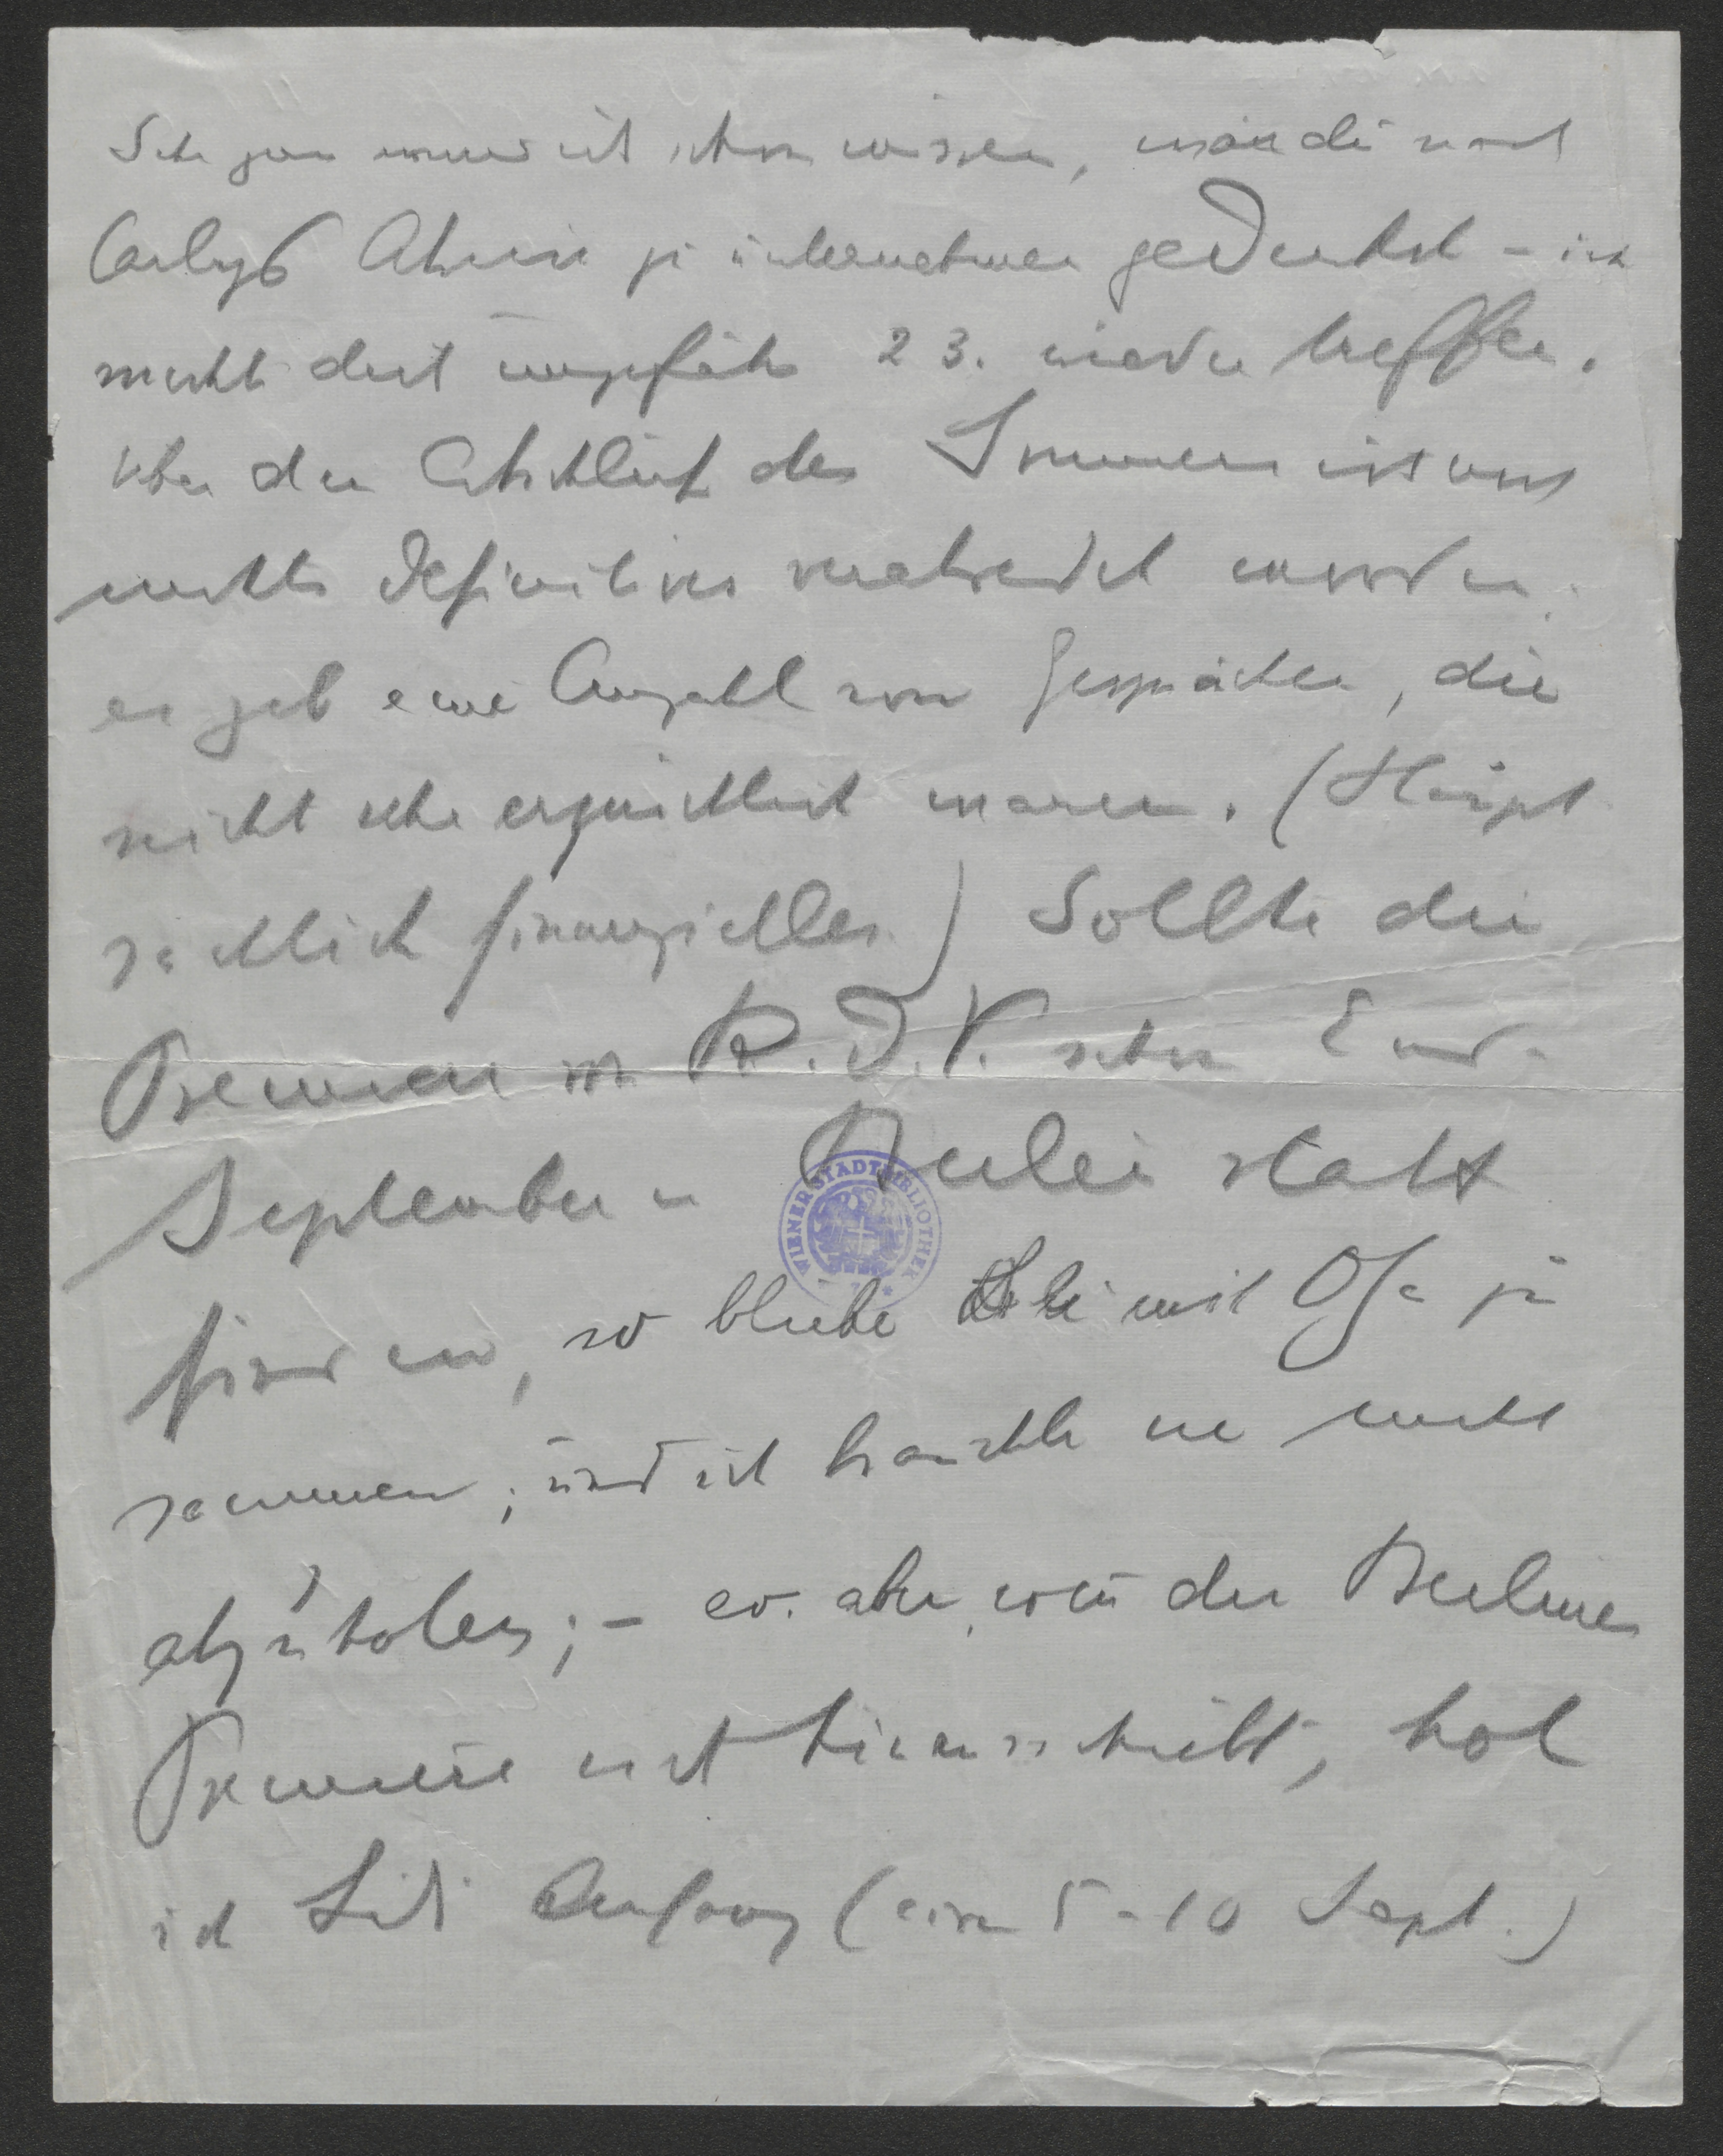 Sehr gern würd ich schon wissen, was du nach
Carlys Abreise zu unternehmen gedenkst – ich
möchte dich ungefähr 23. wieder treffen.
Über den Abschluß des Sommers ist uns
nichts Definitives verabredet worden;
es gab eine Anzahl von Gesprächen, die
nicht sehr erquicklich waren. (Haupt
sächlich finanzielles) Sollte die
Premiere von K. d. V. schon End-
September in Berlin statt
finden, so bliebe Lili mit Olga zu
sammen; und ich brauchte sie nicht
abzuholen; – ev. aber, wenn die Berliner
Premiere sich hinausschiebt, hol
ich Lili Anfang (circa 5–10 Sept.)
WIENER STADTBIBLIOTHEK